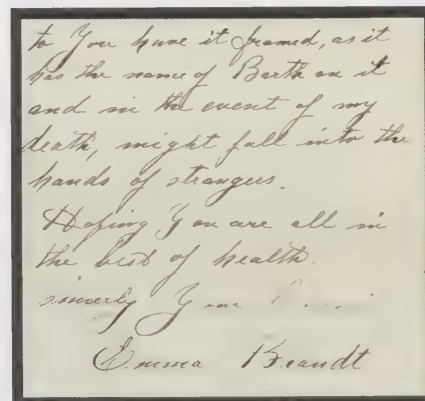 to You have it framed, as it
has the name of Barth on it
and in the event of my
death, might fall into the
hands of strangers.
Hoping You are all in
the best of health.
Sincerely Your
Emma Brandt